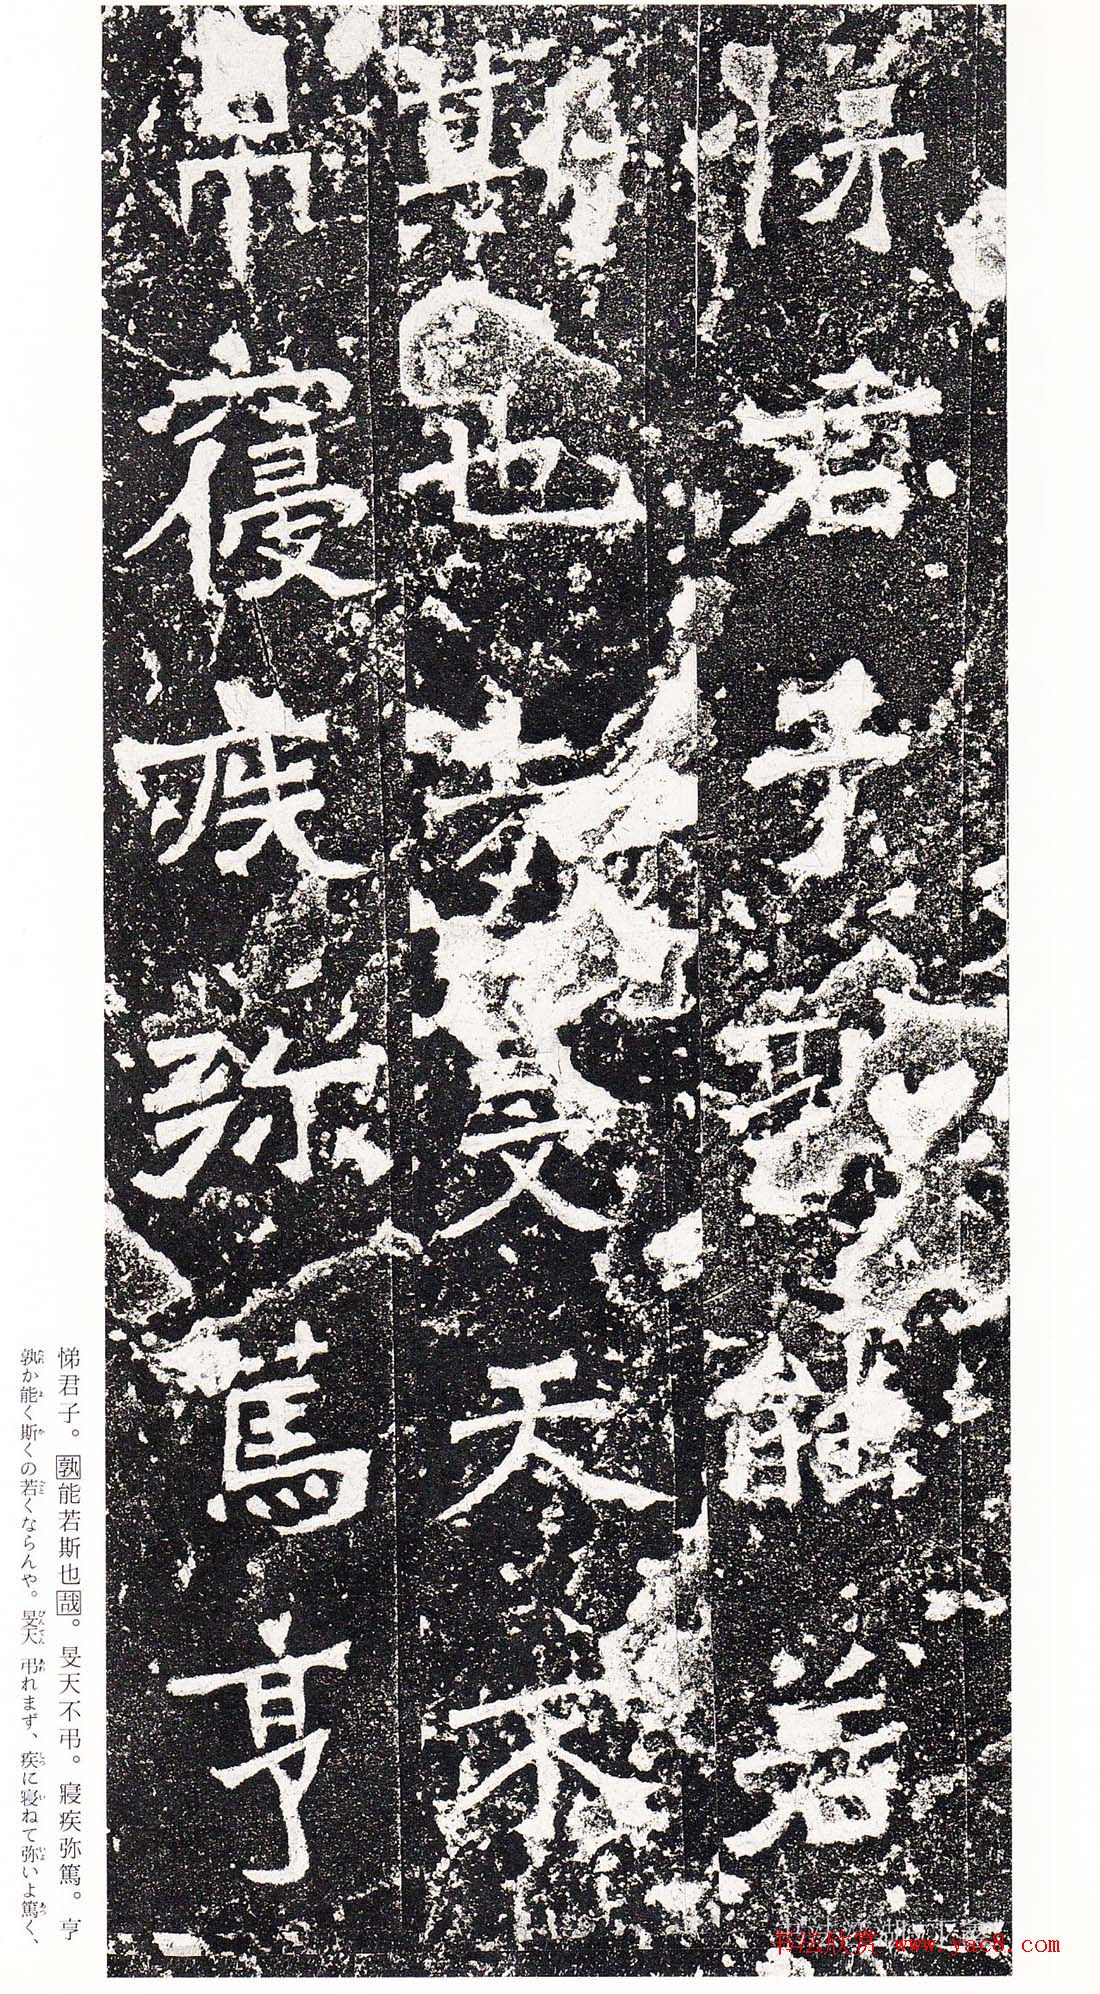 悌君子孰能若
斯也哉旻天不
吊寢疾弥篤亨
悌君子。孰能若斯也哉。旻天不弔。寢疾弥篤。亨
孰か能く斯くの若くならんや。旻天弔れまず、疾に寝ねて弥いよ篤く、
书法欣赏 www.yac8.com